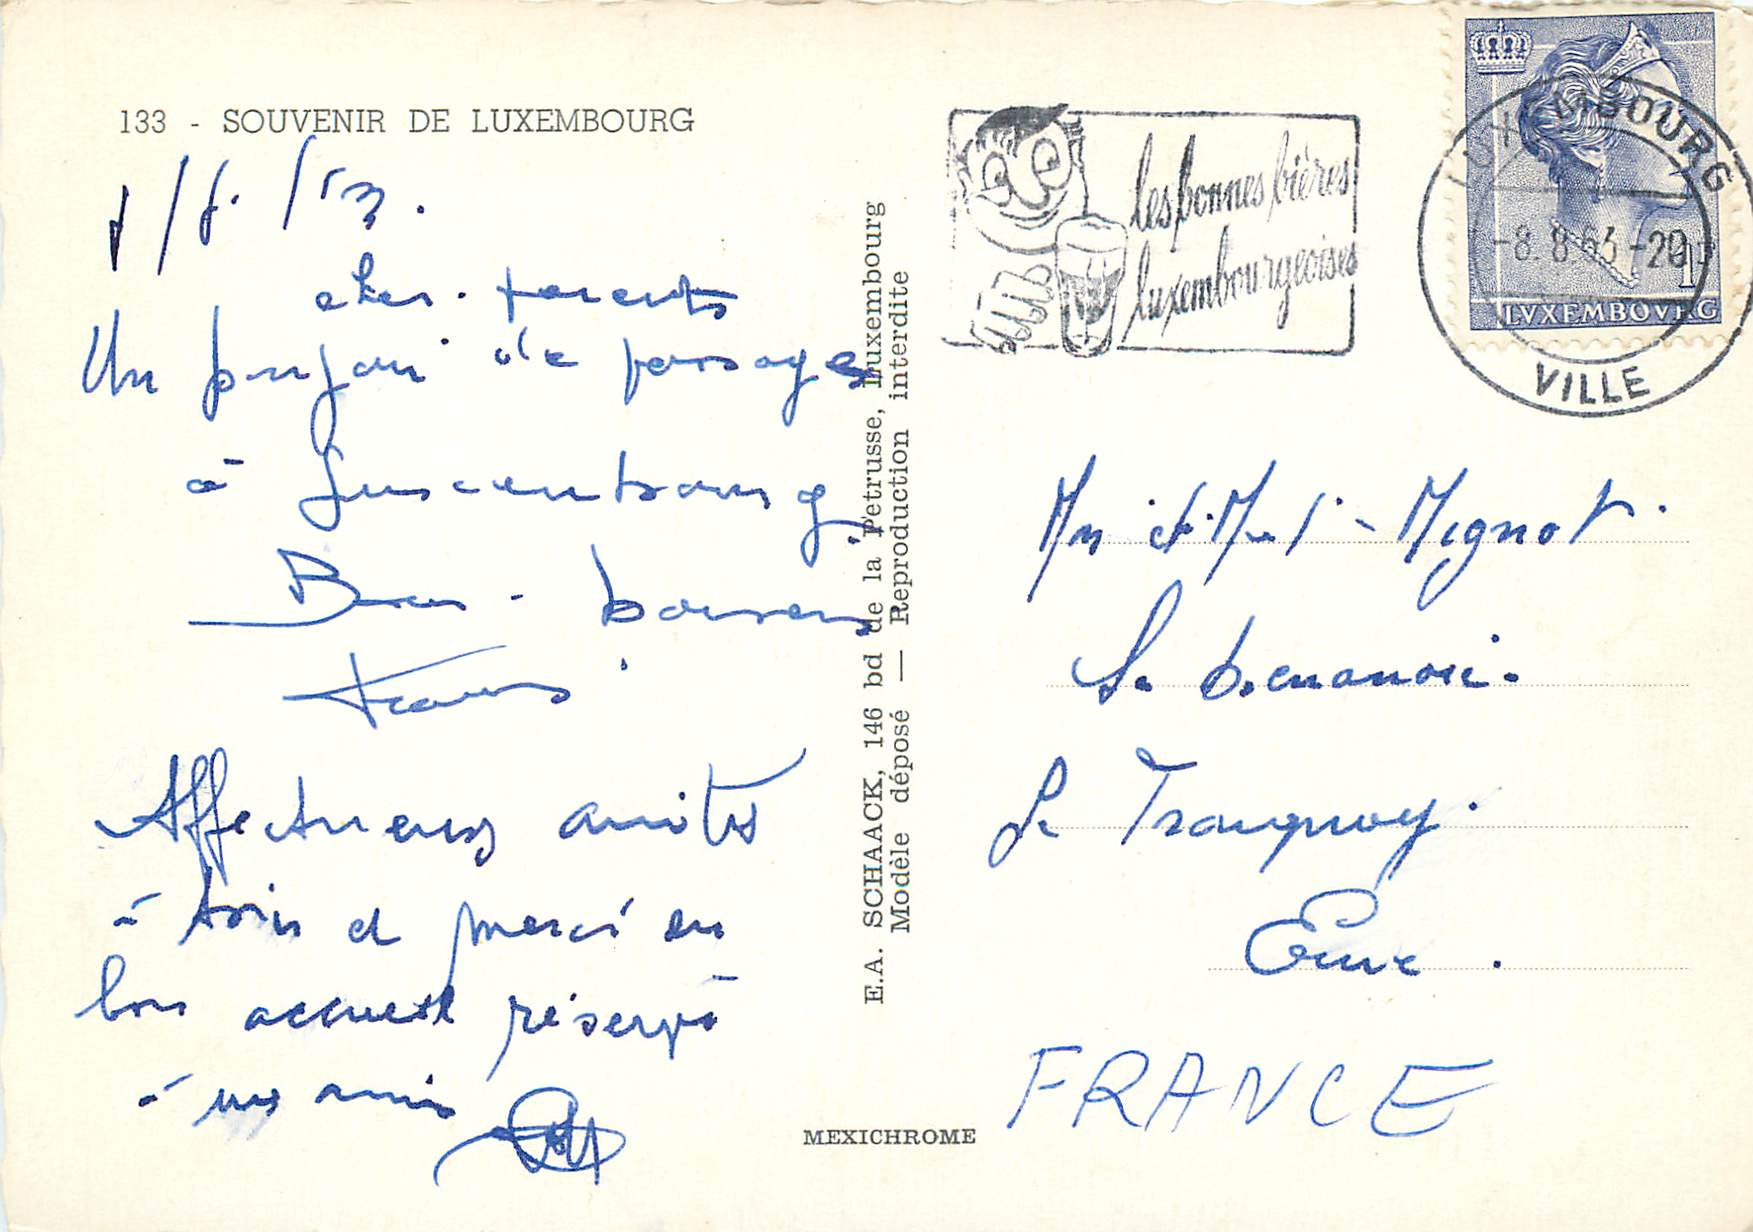 133 - SOUVENIR DE LUXEMBOURG
Cher parents
Un bonjour de passage
à Luxembourg
Bons baisers
Affectueuses amitiés
à tous et merci du
bon accueil réservé
à nos amis
E.A. SCHAACK, 146 bd de la Pétrusse, Luxembourg
Modèle déposé — Reproduction interdite
MEXICHROME
les bonnes bières
luxembourgeoises
LUXEMBOURG
-8.8.63-20
VILLE
1F
LVXEMBOVRG
Mr et Me Mignot
Le Tronquay
Eure
FRANCE